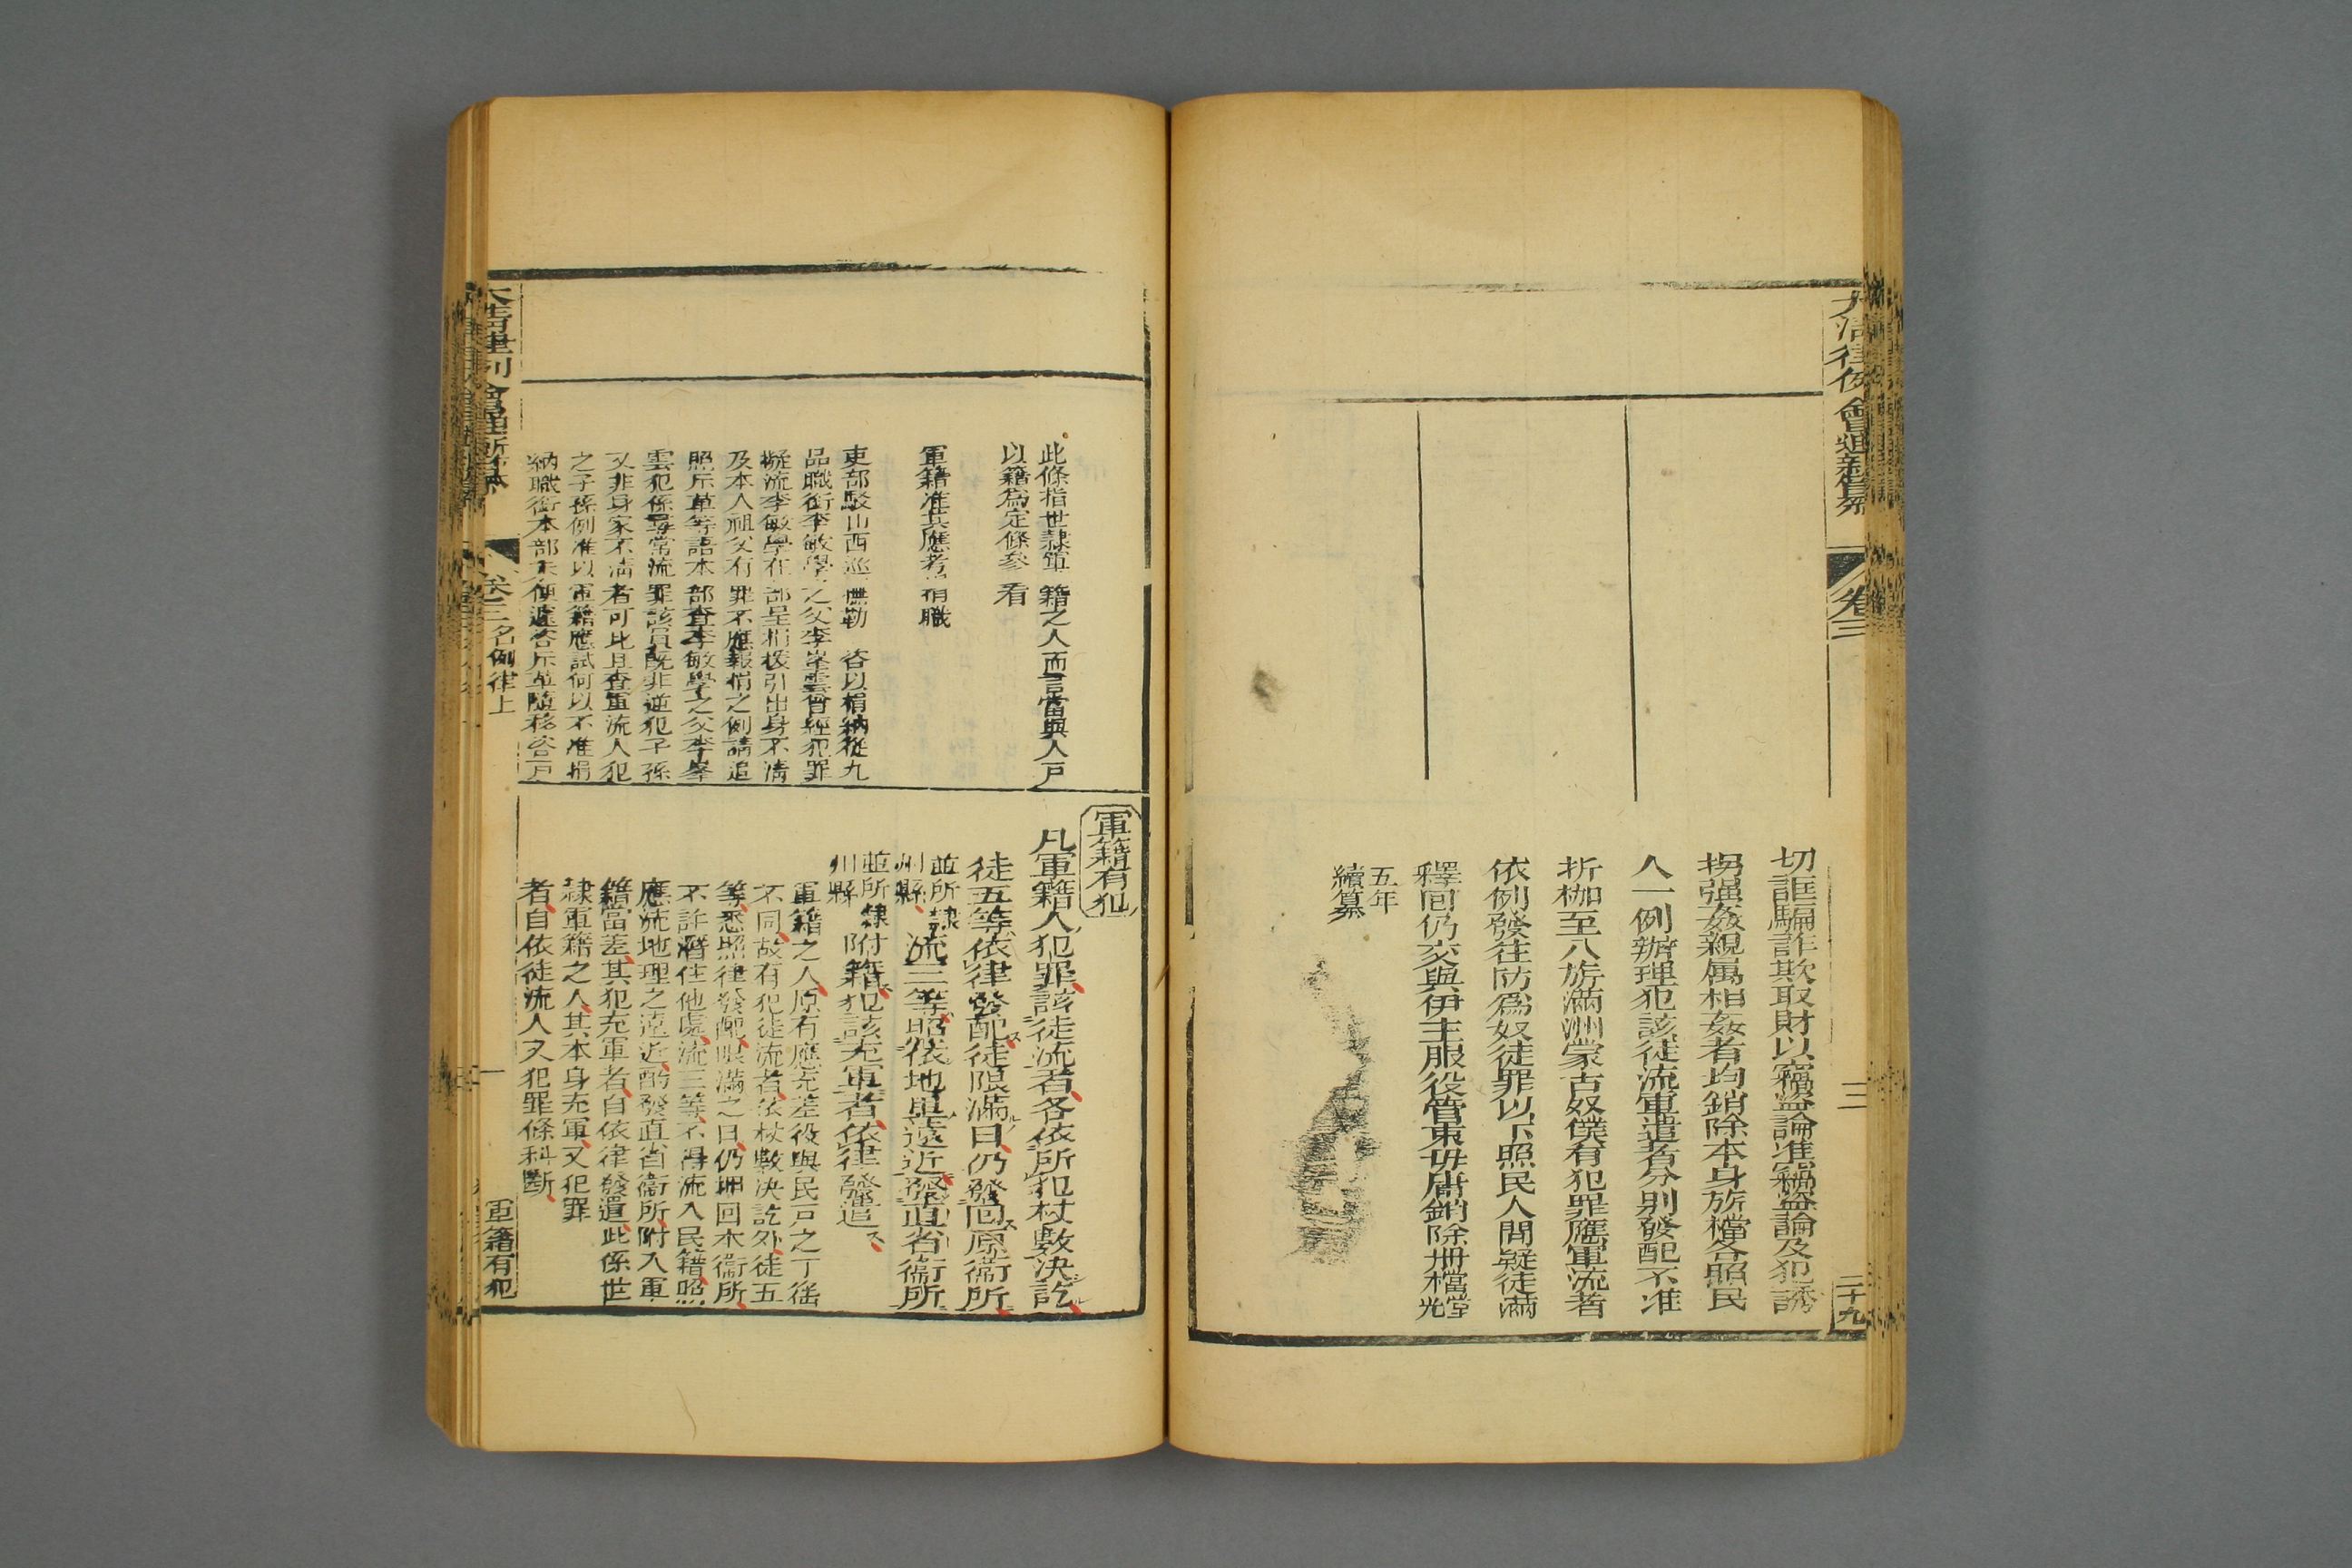 卷三
三
二十九
切誆騙詐欺取財以竊盜論准竊盜論及犯誘
拐强姦親属相姦者均銷除本身旂檔各照民
人一例辦理犯該徒流軍遣者分别發配不准
折枷至八旂滿洲蒙古奴僕有犯罪應軍流者
依例發往防爲奴徒罪以下照民人問疑徒滿
釋囘仍交與伊主服役管束毋庸銷除册檔當光
五年
續纂
此條指世隸軍籍之人而言當與人戶
以籍爲定條參看
軍籍准其應考捐職
吏部駁山西巡撫勒咨以捐納從九
品職銜李敏學之父李峯雲曾經犯罪
擬流李敏學在部呈捐援引出身不淸
及本人祖父有罪不應報捐之例請追
照斥革等語本部查李敏學之父李峯
雲犯係尋常流罪該員旣非逆犯子孫
又非身家不淸者可比且查軍流人犯
之子孫例准以軍籍應試何以不准捐
納職銜本部未便遽咨斥革隨移咨戶
軍籍有犯
凡軍籍人犯罪該徒流者各依所犯杖數決訖
徒五等依律發配徒限滿日仍發囘原衞所
並所隸
州縣流三等照依地里遠近發直省衞所
並所隸
州縣附籍犯該充軍者依律發遣
軍籍之人原有應充差役與民戶之丁徭
不同故有犯徒流者依杖數决訖外徒五
等悉照律發配限滿之日仍押回本衞所
不許潛住他處流三等不得流入民籍照
應流地理之遠近酌發直省衞所附入軍
籍當差其犯充軍者自依律發遣此係世
隸軍籍之人其本身充軍又犯罪
者自依徒流人又犯罪條科斷
卷三名例律上
軍籍有犯